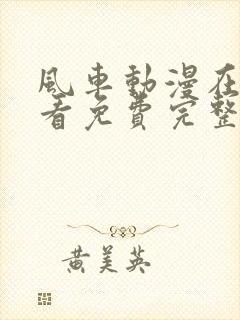 風車動漫在
看免費完整
黃美英